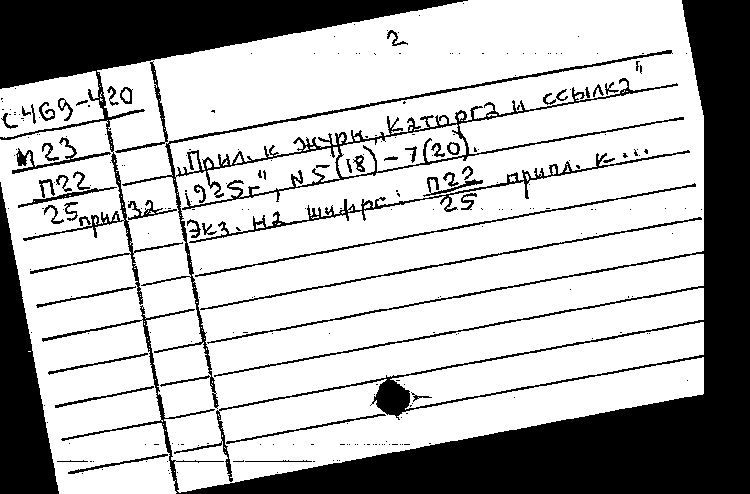 2
с469-420
п23
П22
25 прил 32
„Прил. к журн. „Каторга и ссылка"
1925г", N5(18)-7(20).
Экз. на шифре: П22/25 прил. к...